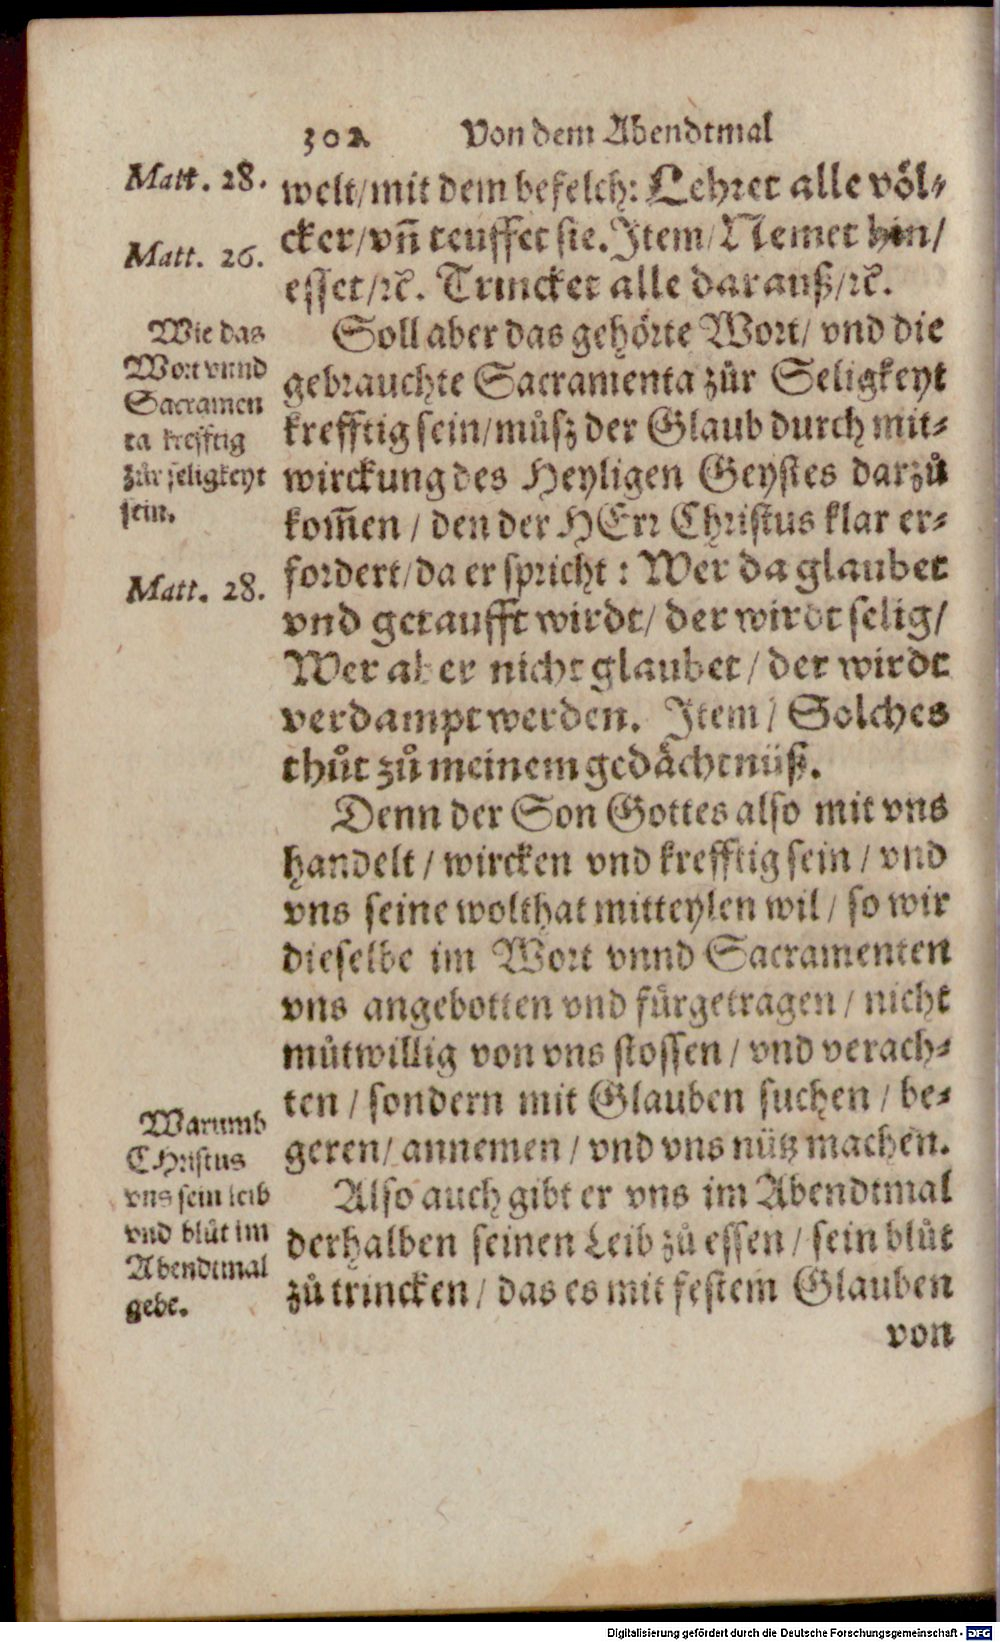 302 Von dem Abendtmal
Matt. 28.
welt/ mit dem befelch: Lehret alle völ⸗
cker/ vñ teuffet sie. Item/ Nemet hin/
Matt. 26.
esset/ ꝛc̃. Trincket alle darauß/ ꝛc̃.
Wie das
Wort vnnd
Sacramen
ta krefftig
zůr seligkeyt
sein.
Soll aber das gehörte Wort/ vnd die
gebrauchte Sacramenta zůr Seligkeyt
krefftig sein/ můsz der Glaub durch mit⸗
wirckung des Heyligen Geystes darzů
kom̃en / den der HErr Christus klar er⸗
fordert/ da er spricht : Wer da glaubet
Matt. 28.
vnd getaufft wirdt/ der wirdt selig/
Wer aber nicht glaubet / der wirdt
verdampt werden. Item / Solches
thůt zů meinem gedächtnüß.
Denn der Son Gottes also mit vns
handelt / wircken vnd krefftig sein / vnd
vns seine wolthat mitteylen wil / so wir
dieselbe im Wort vnnd Sacramenten
vns angebotten vnd fürgetragen / nicht
můtwillig von vns stossen / vnd verach⸗
ten / sondern mit Glauben suchen / be⸗
geren/ annemen / vnd vns nütz machen.
Warumb
CHristus
vns sein leib
vnd blůt im
Abendtmal
gebe.
Also auch gibt er vns im Abendtmal
derhalben seinen Leib zů essen / sein blůt
zů trincken / das es mit festem Glauben
von
Digitalisierung gefördert durch die Deutsche Forschungsgemeinschaft - DFG